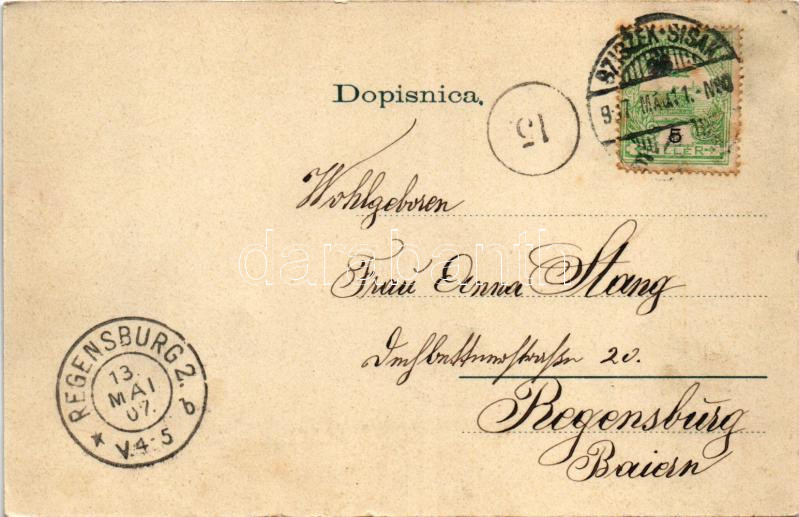 Dopisnica.
SZISZEK·SISAK
907 MAJ. 11.
5
15.
Wohlgeboren
Frau Anna Stang
Dechbettnerstraße 20.
Regensburg
Baiern
REGENSBURG 2.
13.
MAI
07.
V.4-5
b
darabanth